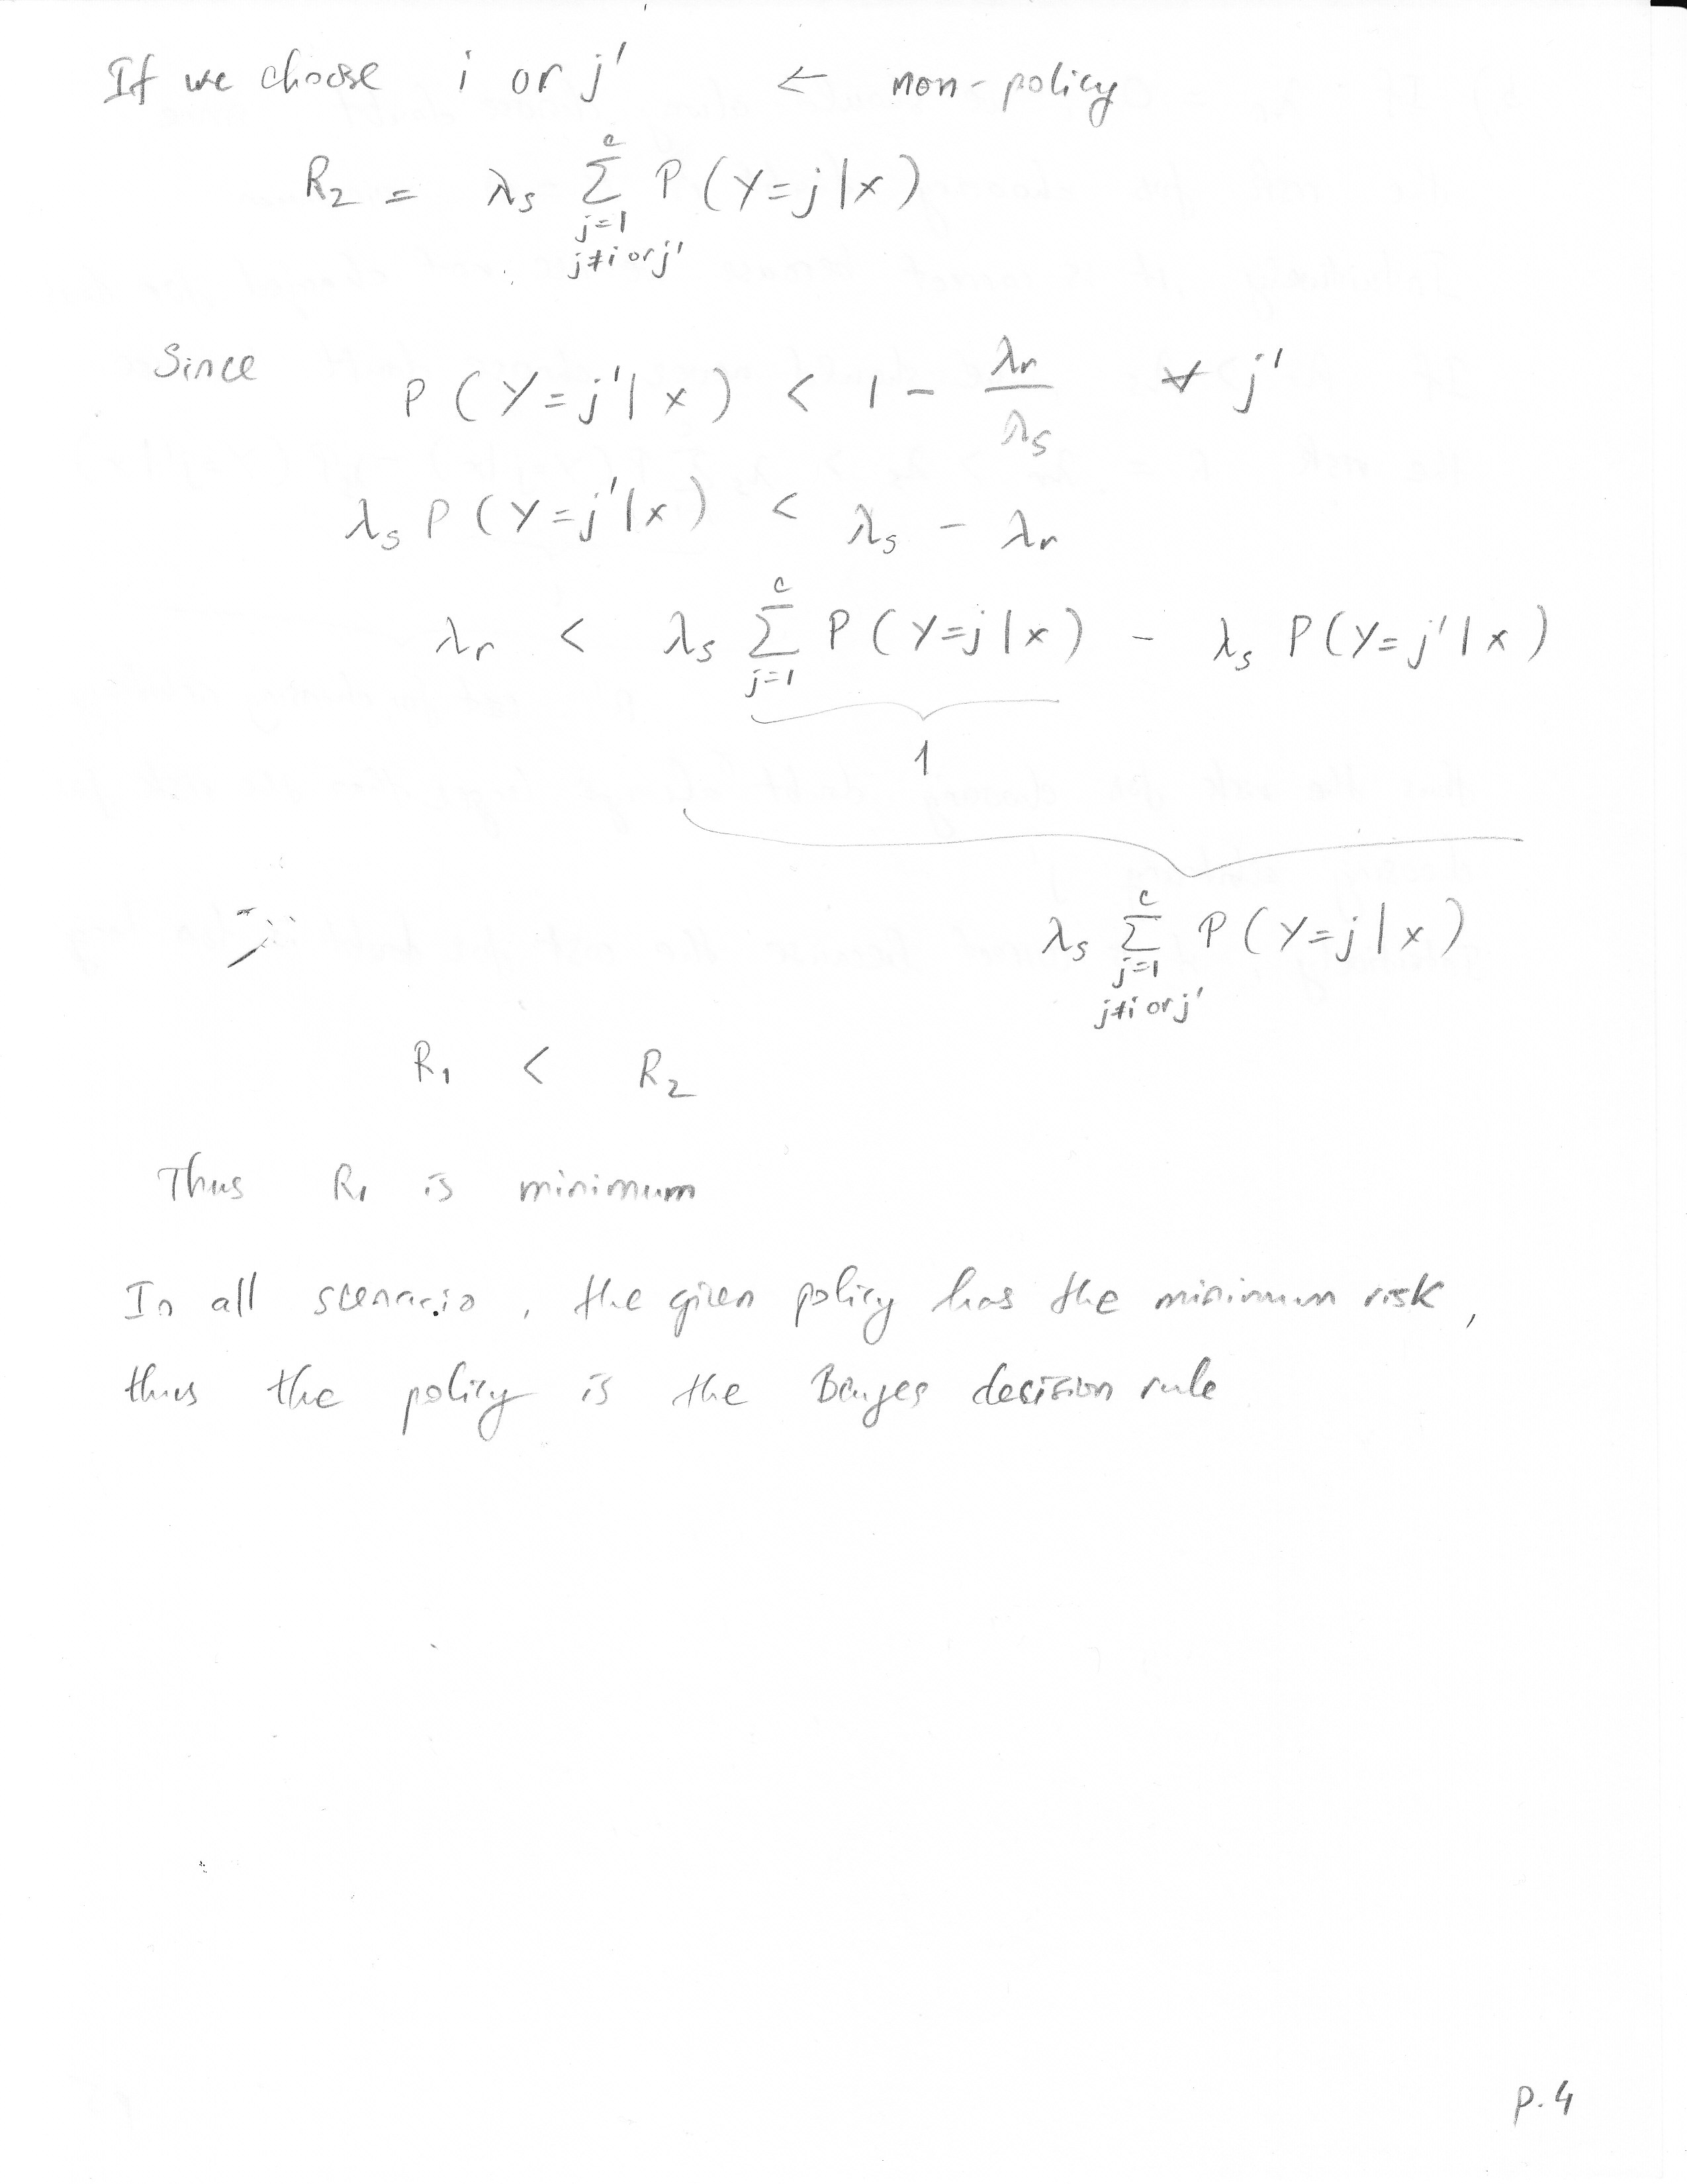 If we choose i or j' ← non-policy
R₂ = λs Σ_{j=1, j≠i or j'}^{c} P(Y=j|x)
Since P(Y=j'|x) < 1 - λr/λs ∀ j'
λs P(Y=j'|x) < λs - λr
λr < λs Σ_{j=1}^{c} P(Y=j|x) - λs P(Y=j'|x)
1
λs Σ_{j=1, j≠i or j'}^{c} P(Y=j|x)
R₁ < R₂
Thus R₁ is minimum
In all scenario, the given policy has the minimum risk,
thus the policy is the Bayes decision rule
p.4